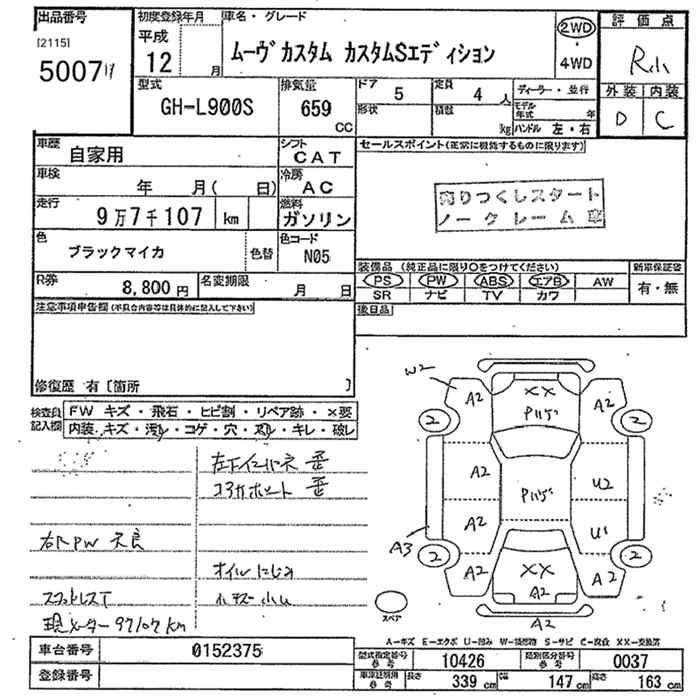 出品番号
[2115]
5007
初度登録年月
平成
12 月
車名・グレード
ムーヴカスタム カスタムSエディション
2WD
・
4WD
評価点
R小
外装 内装
D C
型式
GH-L900S
排気量
659
CC
ドア
5
定員
4 人
形状
積載
kg
ディーラー・並行
モデル年式 年
ハンドル 左・右
車歴
自家用
シフト
CAT
車検
年 月( 日)
冷房
AC
走行
9万7千107 km
燃料
ガソリン
色
ブラックマイカ
色替
色コード
N05
R券
8,800円
名変期限
月 日
セールスポイント(正常に機能するものに限ります)
売りつくしスタート
ノークレーム車
装備品 (純正品に限り○をつけてください)
PS PW ABS エアB AW
SR ナビ TV カワ
新車保証書
有・無
後日品
注意事項申告欄(不具合内容等は具体的に記入して下さい)
修復歴 有〔箇所 〕
検査員記入欄
FW キズ・飛石・ヒビ割・リペア跡・×要
内装、キズ・汚レ・コゲ・穴・スレ・キレ・破レ
左下インパネ 歪
コアサポート 歪
右ドアPW 不良
オイルにじみ
スタッドレスT
小キズ・小U
現メーター 97107 km
W2
A2
XX
Pハゲ
A2
2
2
A2
Pハゲ
U2
A3
A2
U1
2
2
A2
XX
A2
A2
スペア
A2
A-キズ E-エクボ U-凹み W-補修跡 S-サビ C-腐食 XX-交換済
車台番号
0152375
登録番号
型式指定番号
参考
10426
類別区分番号
参考
0037
車庫証明用
参考
長さ
339 cm
幅
147 cm
高さ
163 cm